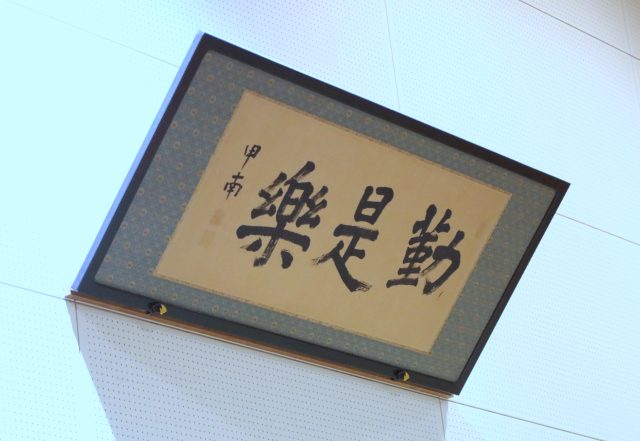 勤是樂
甲南